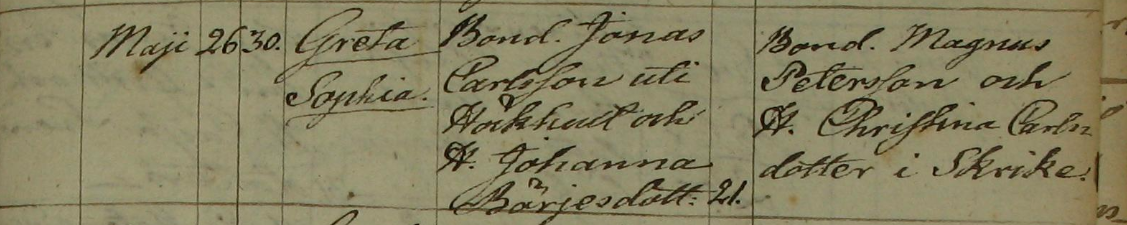 Maji 26 30. Greta Bond. Jonas Bond. Magnus
Sophia. Carlsson uti Petersson och
Håkhult och H. Christina Carls
H. Johanna dotter i Skrike.
Börjesdott: 21.